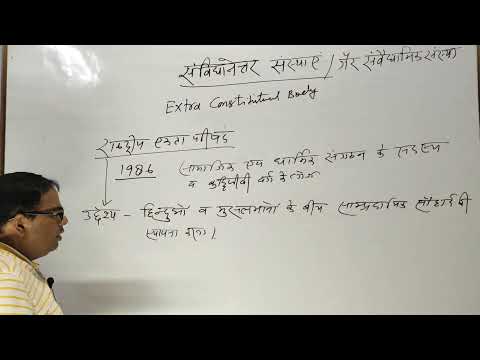 संविधानेत्तर संस्थाएं / गैर संवैधानिक संस्था
Extra Constitutional Body
राष्ट्रीय एकता परिषद
1986 सामाजिक एवं धार्मिक संगठन के सदस्य
व बुद्धिजीवी वर्ग के लोग
उद्देश्य - हिन्दुओं व मुसलमानों के बीच साम्प्रदायिक सौहार्द की
स्थापना करना।